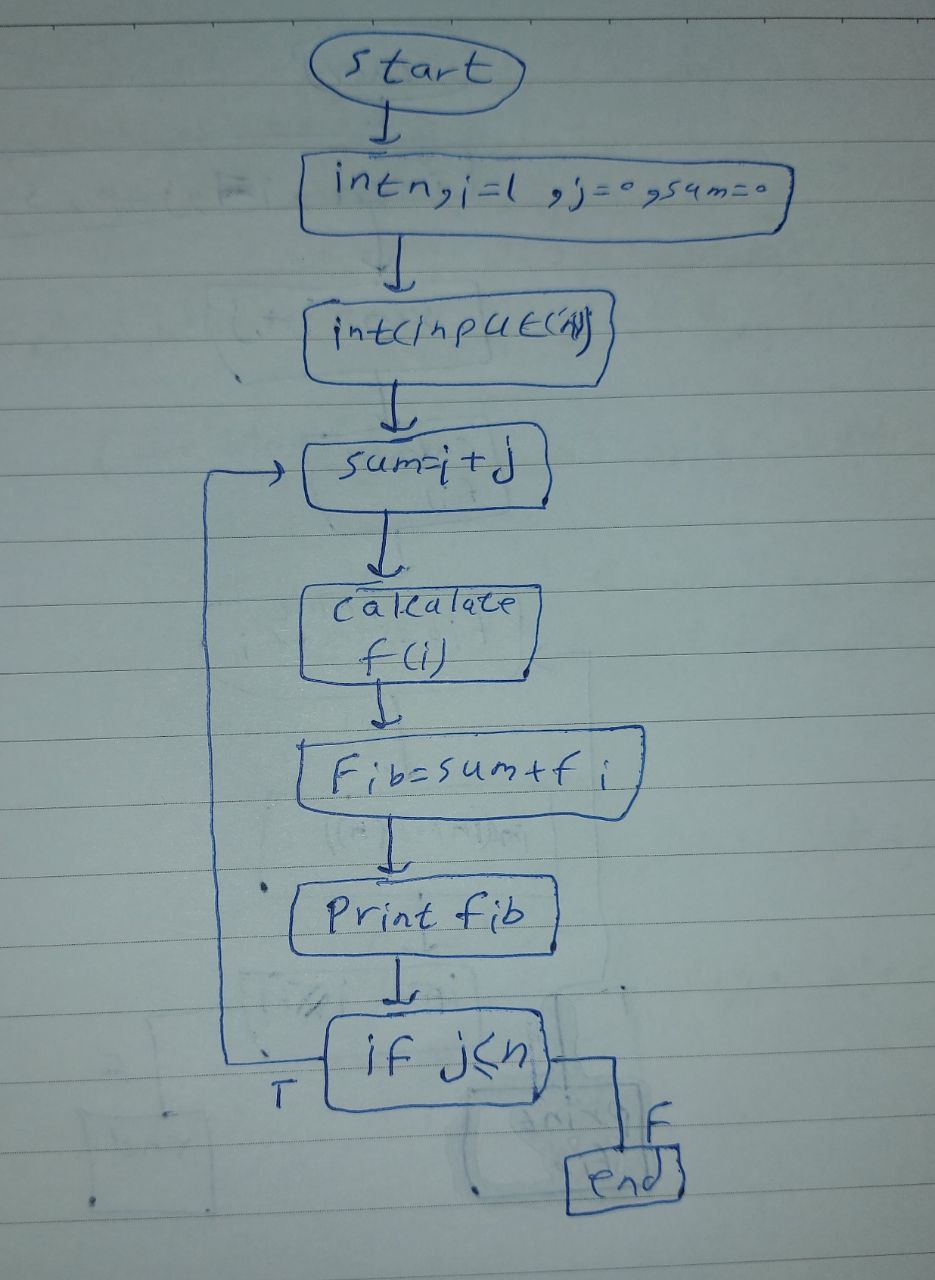 start
int n, i=1 , j=0, sum=0
int(input(n))
sum=i+j
calculate
f(i)
Fib=sum+f i
Print fib
if j≤n
T
F
end